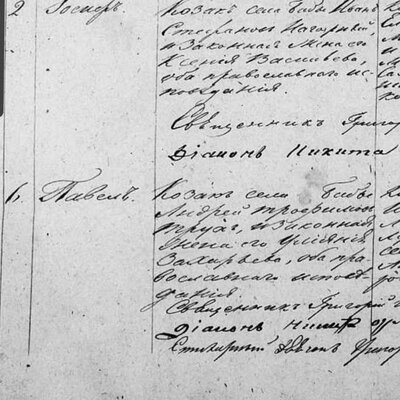 2 Іосифъ. Козакъ села Бабы Иванъ
Стефановъ Нагорный,
и законная жена его
Ксенія Васильева,
оба православнаго ис-
повѣданія.
Священникъ Григор
Діаконъ Никита
6, Павелъ. Козакъ села Бабы
Андрей Трофимовъ
и законная
жена его Уліянія
Захарьева, оба пра-
вославнаго исповѣ-
данія.
Священникъ Григорій
Діаконъ Никита
Стихарный Григор